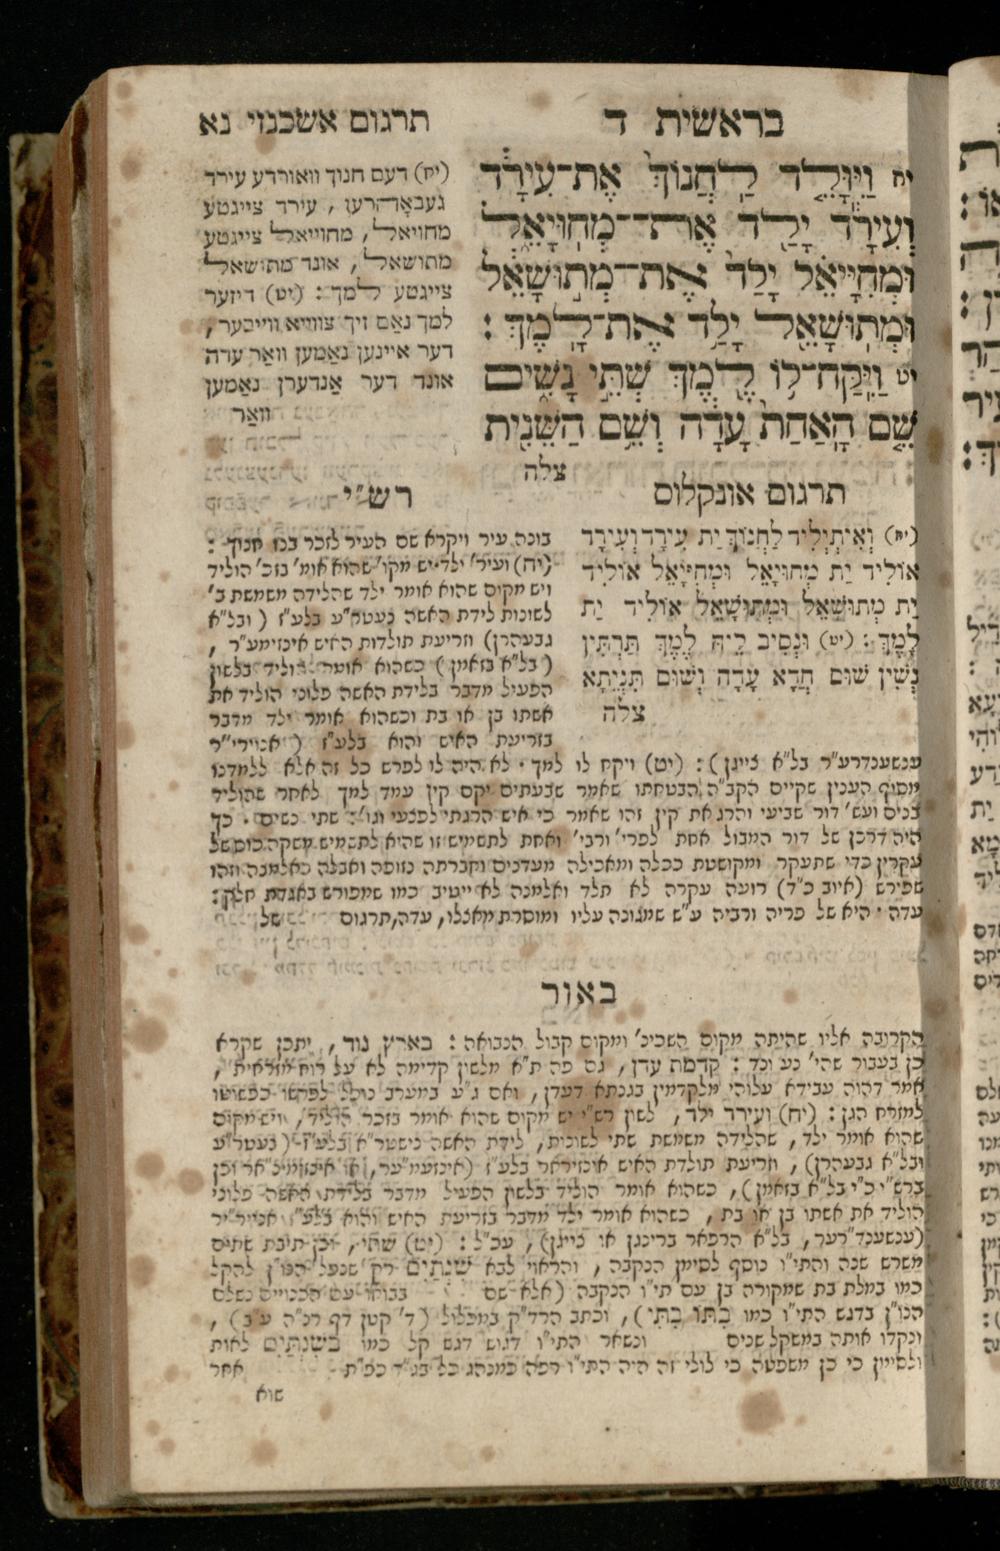 בראשית ד
תרגום אשכנזי נא
יח וַיִּוָּלֵד לַחֲנוֹךְ אֶת־עִירָד
וְעִירָד יָלַד אֶת־מְחוּיָאֵל
וּמְחִיָּיאֵל יָלַד אֶת־מְתוּשָׁאֵל
וּמְתוּשָׁאֵל יָלַד אֶת־לָמֶךְ :
יט וַיִּקַּח־לוֹ לֶמֶךְ שְׁתֵּי נָשִׁים
שֵׁם הָאַחַת עָדָה וְשֵׁם הַשֵּׁנִית
צלה
(יח) דעם חנוך וואורדע עירד
געבאָהרען , עירד צייגטע
מחויאל , מחוייאל צייגטע
מתושאל , אונד מתושאל
צייגטע למך : (יט) דיזער
למך נאַם זיך צווייא ווייבער ,
דער איינען נאַמען וואַר עדה
אונד דער אַנדערן נאַמען
וואַר
תרגום אונקלוס
(יח) וְאִיתְיְלִיד לַחֲנוֹךְ יַת עִירָד וְעִירָד
אוֹלִיד יַת מְחוּיָאֵל וּמְחִיָּיאֵל אוֹלִיד
יַת מְתוּשָׁאֵל וּמְתוּשָׁאֵל אוֹלִיד יַת
לָמֶךְ : (יט) וּנְסִיב לֵיהּ לֶמֶךְ תַּרְתֵּין
נְשִׁין שׁוּם חֲדָא עָדָה וְשׁוּם תִּנְיֵתָא
צלה
רש״י
בונה עיר ויקרא שם העיר לזכר בנו חנוך :
(יח) ועיר׳ ילד יש מקו׳ שהוא אומ׳ בזכ׳ הוליד
ויש מקום שהוא אומר ילד שהלידה משמשת ב׳
לשונות לידת האשה נעטח״ע בלע״ז ( ובל״א
געבעהרן) וזריעת תולדות האיש אינזימע״ר ,
( בל״א בזאמן ) כשהוא אומר הוליד בלשון
הפעיל מדבר בלידת האשה פלוני הוליד את
אשתו בן או בת וכשהוא אומר ילד מדבר
בזריעת האיש והוא בלע״ז ( אנוירי״ר
ענשענדרע״ר בל״א צייגן ) : (יט) ויקח לו למך . לא היה לו לפרש כל זה אלא ללמדנו
מסוף הענין שקיים הקב״ה הבטחתו שאמר שבעתים יקם קין עמד למך לאחר שהוליד
בנים ועש׳ דור שביעי והרג את קין זהו שאמר כי איש הרגתי לפצעי וגו׳ : שתי נשים . כך
היה דרכן של דור המבול אחת לפרי׳ ורבי׳ ואחת לתשמיש זו שהיא לתשמיש משקה כוס של
עקרין כדי שתעקר ומקושטת ככלה ומאכילה מעדנים וחברתה נזופה ואבלה כאלמנה וזהו
שפירש (איוב כ״ד) רועה עקרה לא תלד ואלמנה לא ייטיב כמו שמפורש באגדת חלק :
עדה . היא של פריה ורביה ע״ש שמגונה עליו ומוסרת מאצלו, עדה, תרגום של
באור
הקרובה אליו שהיתה מקום השכינ׳ ומקום קבול הנבואה : בארץ נוד , יתכן שקרא
כן בעבור שהי׳ נע ונד : קדמת עדן , גם פה ת״א מלשון קדימה לא על רוח מזראית ,
אמר דהוה עבידא עלוהי מלקדמין בגנתא דעדן , ואם ג״ע במערב נוכל לפרשו כפשוטו
למזרח הגן : (יח) ועירד ילד , לשון רש״י יש מקום שהוא אומר בזכר הוליד , ויש מקום
שהוא אומר ילד , שהלידה משמשת שתי לשונות , לידת האשה נישטר״א בלע״ז (נעטר״ע
ובל״א געבעהרן) , וזריעת תולדת האיש אוכזיראר בלע״ז (אינזעמ״ער, או אינזמינ״אר וכן
ברש״י כ״י בל״א בזאמן) , כשהוא אומר הוליד בלשון הפעיל מדבר בלידת האשה פלוני
הוליד את אשתו בן או בת , כשהוא אומר ילד מדבר בזריעת האיש והוא בלע״ז אנויר״יר
(ענשענד״רער, בל״א הרפאר ברינגן או צייגן) , עכ״ל : (יט) שתי , וכן תיבת שתים
משרש שנה והתי״ו נוסף לסימן הנקבה , והראוי לבא שְׁנְתַּיִם רק שנפל הנו״ן להקל
כמו במלת בת שמקורה בן עם תי״ו הנקבה (אלא שם בבואו עם הכנויים נשלם
הנו״ן בדגש התי״ו כמו בִּתּוֹ בִּתִּי) , וכתב הרד״ק במכלול ( ד׳ קטן דף רל״ה ע״ב) ,
ונקדו אותה במשקל שנים ונשאר התי״ו דגוש דגש קל כמו בִּשְׁנְתַּיִם לאות
ולסימן כי כן משפטה כי לולי זה היה התי״ו רפה כמנהג כל בג״ד כפ״ת אחר
שוא